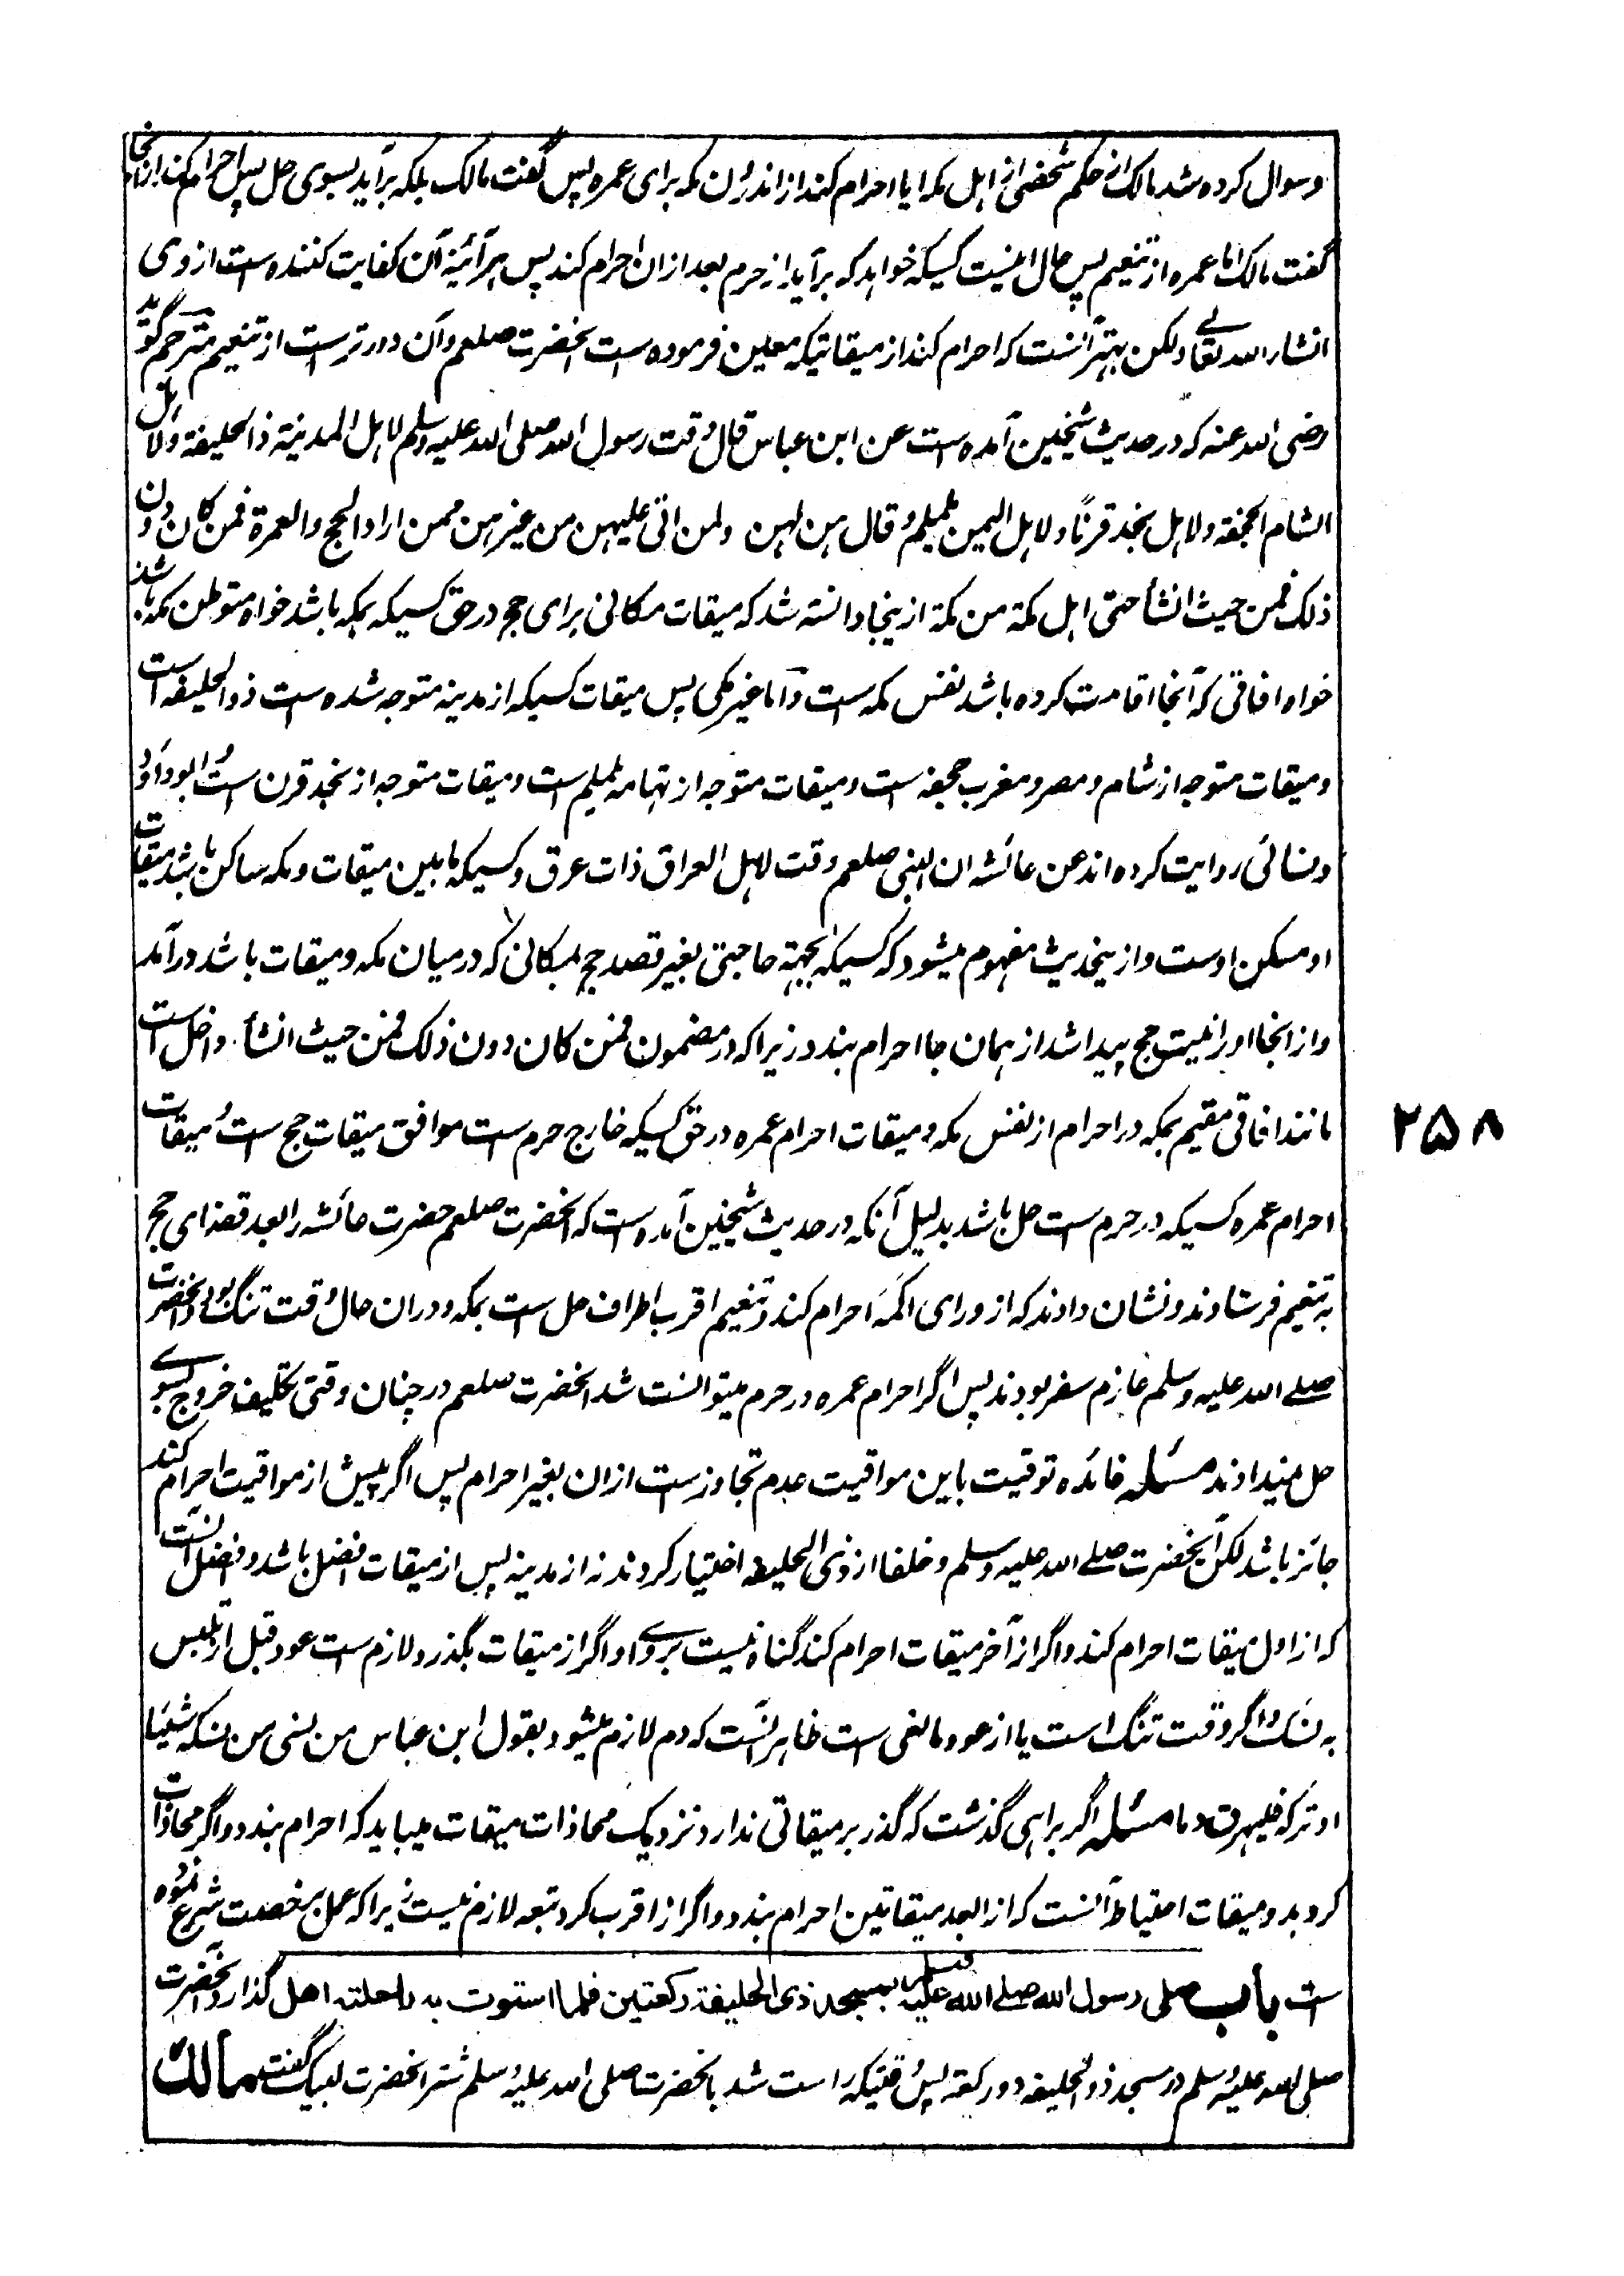 وسوال کرده شد مالک از حکم شخصی از اهل مکه ایا احرام کند از اندرون مکه برای عمره پس گفت مالک بلکه برآید بسوی حل پس احرام کند ازانجا
گفت مالک اما عمره از تنعیم پس حال اینست کسیکه خواهد که برآید از حرم بعد ازان احرام کند پس هرآئینه آن کفایت کننده است از وی
انشاء الله تعالی ولکن بهتر آنست که احرام کند از میقاتیکه معین فرموده است آنحضرت صلعم وآن دورترست از تنعیم مترجم گوید
رضی الله عنه که در حدیث شیخین آمده است عن ابن عباس قال وقت رسول الله صلی الله علیه وسلم لاهل المدینة ذا الحلیفة ولاهل
الشام الجحفة ولاهل نجد قرناً ولاهل الیمن یلملم وقال هن لهن ولمن اتی علیهن من غیرهن ممن اراد الحج والعمرة فمن کان دون
ذلک فمن حیث انشأ حتی اهل مکة من مکة ازینجا دانسته شد که میقات مکانی برای حج در حق کسیکه بمکه باشد خواه متوطن مکه باشد
خواه افاقی که آنجا اقامت کرده باشد نفس مکه است واما غیر مکی پس میقات کسیکه از مدینه متوجه شده است ذوالحلیفه است
ومیقات متوجه از شام ومصر ومغرب جحفه است ومیقات متوجه از تهامه یلملم است ومیقات متوجه از نجد قرن است وابوداؤد
ونسائی روایت کرده اند عن عائشه ان النبی صلعم وقت لاهل العراق ذات عرق وکسیکه مابین میقات ومکه ساکن باشد میقات
او مسکن اوست وازینحدیث مفهوم میشود که کسیکه بجهة حاجتی بغیر قصد حج بمکانی که درمیان مکه ومیقات باشد درآمد
وازانجا او را نیت حج پیدا شد از همان جا احرام بندد زیرا که در مضمون فمن کان دون ذلک فمن حیث انشأ داخل است
مانند افاقی مقیم بمکه در احرام از نفس مکه ومیقات احرام عمره در حق کسیکه خارج حرم ست موافق میقات حج ست ومیقات
احرام عمره کسیکه در حرم ست حل باشد بدلیل آنکه در حدیث شیخین آمده ست که آنحضرت صلعم حضرت عائشه را بعد قضای حج
به تنعیم فرستادند ونشان دادند که از ورای اکمه احرام کند وتنعیم اقرب اطراف حل ست بمکه ودران حال وقت تنگ بود وآنحضرت
صلے الله علیه وسلم عازم سفر بودند پس اگر احرام عمره در حرم میتوانست شد آنحضرت صلعم در چنان وقتی تکلیف خروج بسوے
حل نمیدادند مسئله فائده توقیت باین مواقیت عدم تجاوزست ازان بغیر احرام پس اگر پیش از مواقیت احرام کند
جائز باشد لکن آنحضرت صلے الله علیه وسلم وخلفا از ذی الحلیفه اختیار کردند نه از مدینه پس از میقات افضل باشد وافضل آنست
که از اول میقات احرام کند واگر از آخر میقات احرام کند گناه نیست بروے واو اگر از میقات بگذرد لازم ست عود قبل از تلبس
به نسک واگر وقت تنگ است یا از عود مانعی ست ظاهر آنست که دم لازم میشود بقول ابن عباس من نسی من نسکه شیئا
او ترکه فلیهرق دما مسئله اگر براهی گذشت که گذر بر میقاتی ندارد نزدیک محاذات میقات میباید که احرام بندد واگر محاذات
کرد بدو میقات احتیاط آنست که از ابعد میقاتین احرام بندد واگر از اقرب کرد تبعه لازم نیست زیرا که عمل برخصت شرع نموده
ست باب صلی رسول الله صلے الله علیه وسلم بمسجد ذی الحلیفة رکعتین فلما استوت به راحلته اهل گذارد آنحضرت
صلی الله علیه وسلم در مسجد ذوالحلیفه دو رکعت پس وقتیکه راست شد بآنحضرت صلی الله علیه وسلم شتر آنحضرت لبیک گفت مالک
۲۵۸